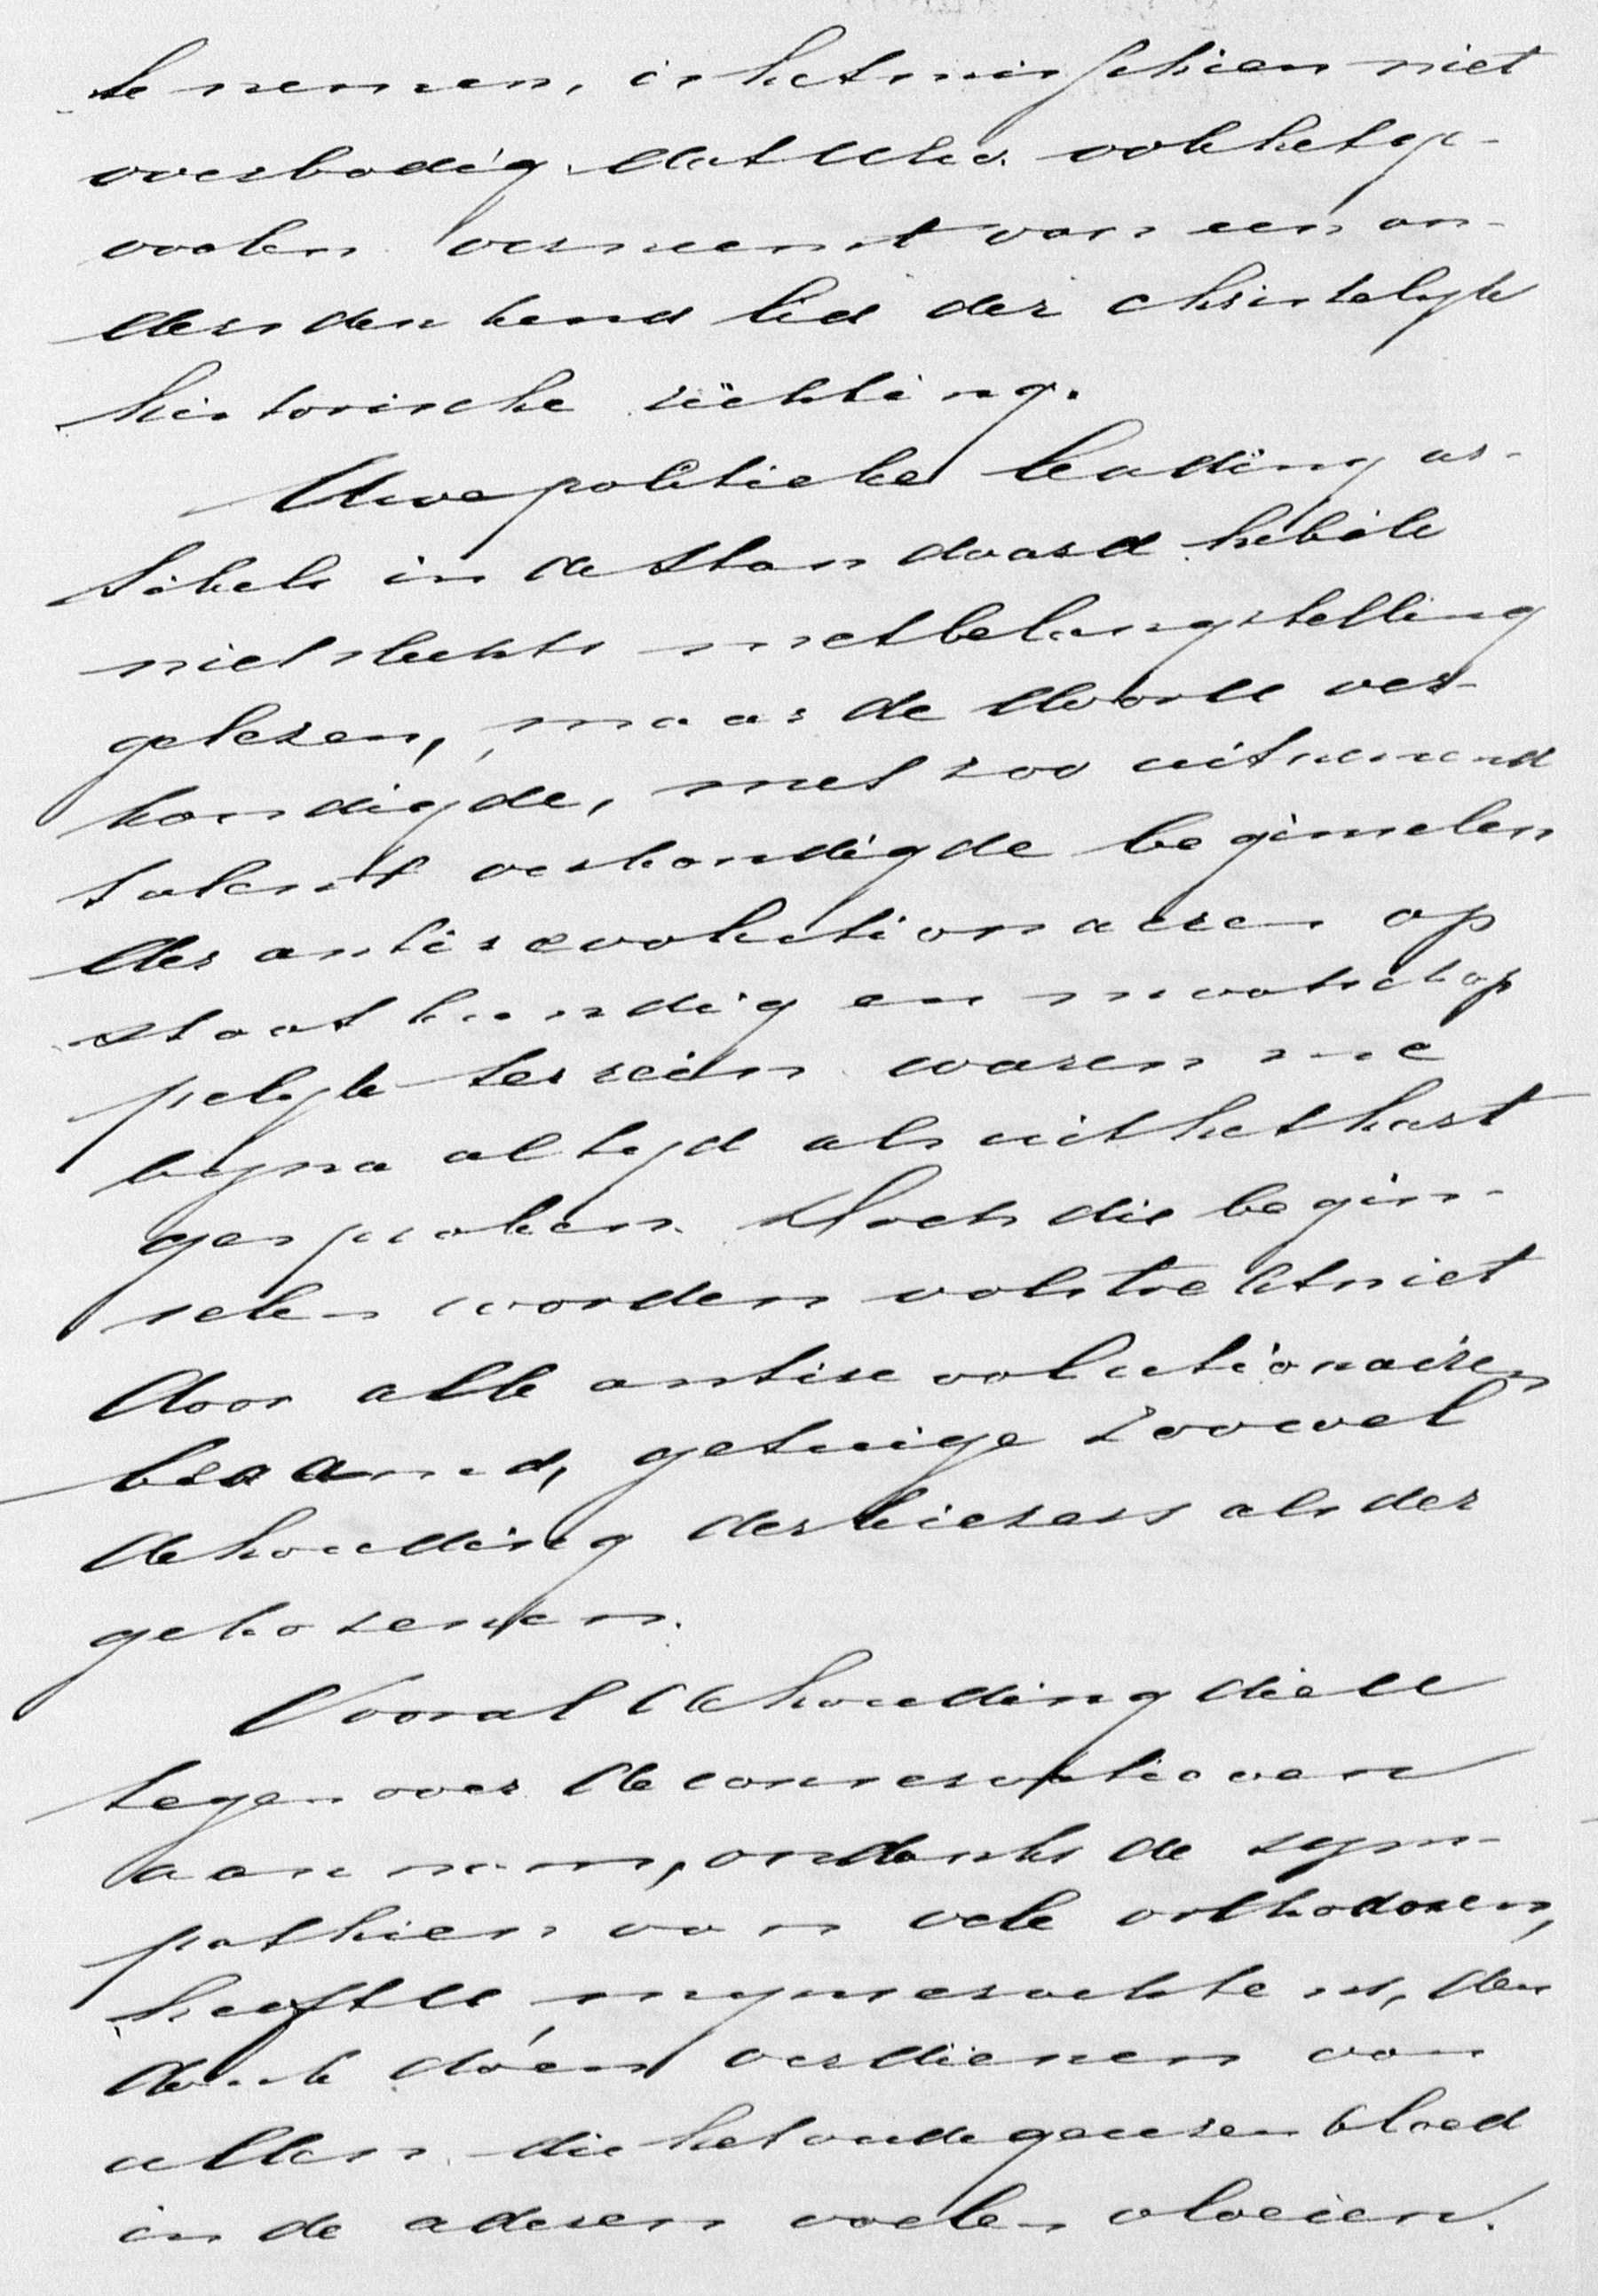 te nemen, is het misschien niet
overbodig dat UEw. ook het ge-
voelen verneemt van een an-
ders denkend lid der christelyk
historische richting.
Uwe politieke leading ar-
tikels in de Standaard heb ik
niet slechts met belangstelling
gelezen, maar de door U ver-
kondigde, met zoo uitnemend
talent verkondigde beginselen
der antirevolutionairen op
staatkundig en maatschap
pelyk terrein waren me
byna altyd als uit het hart
gesproken. Doch die begin-
selen worden volstrekt niet
door alle antirevolutionairen
beaamd, getuige zoowel
de houding der kiezers als der
gekozenen.
Vooral de houding die U
tegenover de conservatieven
aannam, ondanks de sym-
pathien van vele orthodoxen,
heeft U, myns erachtens, den
dank doen verdienen van
allen die het oude geuzenbloed
in de aderen voelen vloeien.